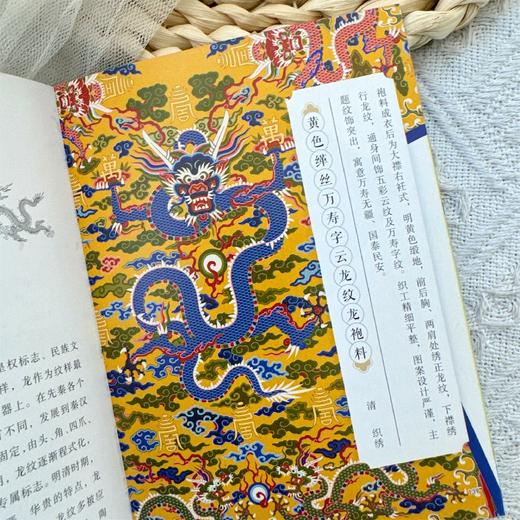 皇权标志、民族文
样，龙作为纹样最
器上。在先秦各
有不同，发展到秦汉
固定，由头、角、四爪、
，龙纹逐渐程式化，
专属标志。明清时期，
华贵的特点，龙
龙纹多被应
陶
萬
萬
袍料成衣后为大襟右衽式，明黄色缎地，前后胸、两肩处绣正龙纹，下襟绣
行龙纹，通身间饰五彩云纹及万寿字纹。织工精细平整，图案设计严谨，主
题纹饰突出，寓意万寿无疆、国泰民安。
黄色缂丝万寿字云龙纹龙袍料
清 织绣